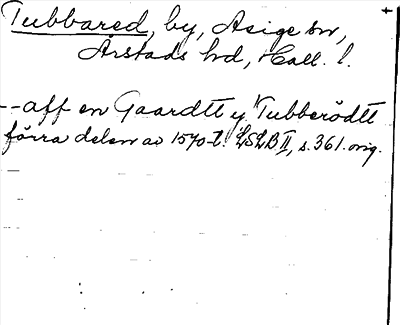 Tubbared, by, Asige sn,
Årstads hd, Hall. l.
--aff en Gaardtt y Tubberödtt
förra delen av 1570-t. LSLB II, s. 361. orig.